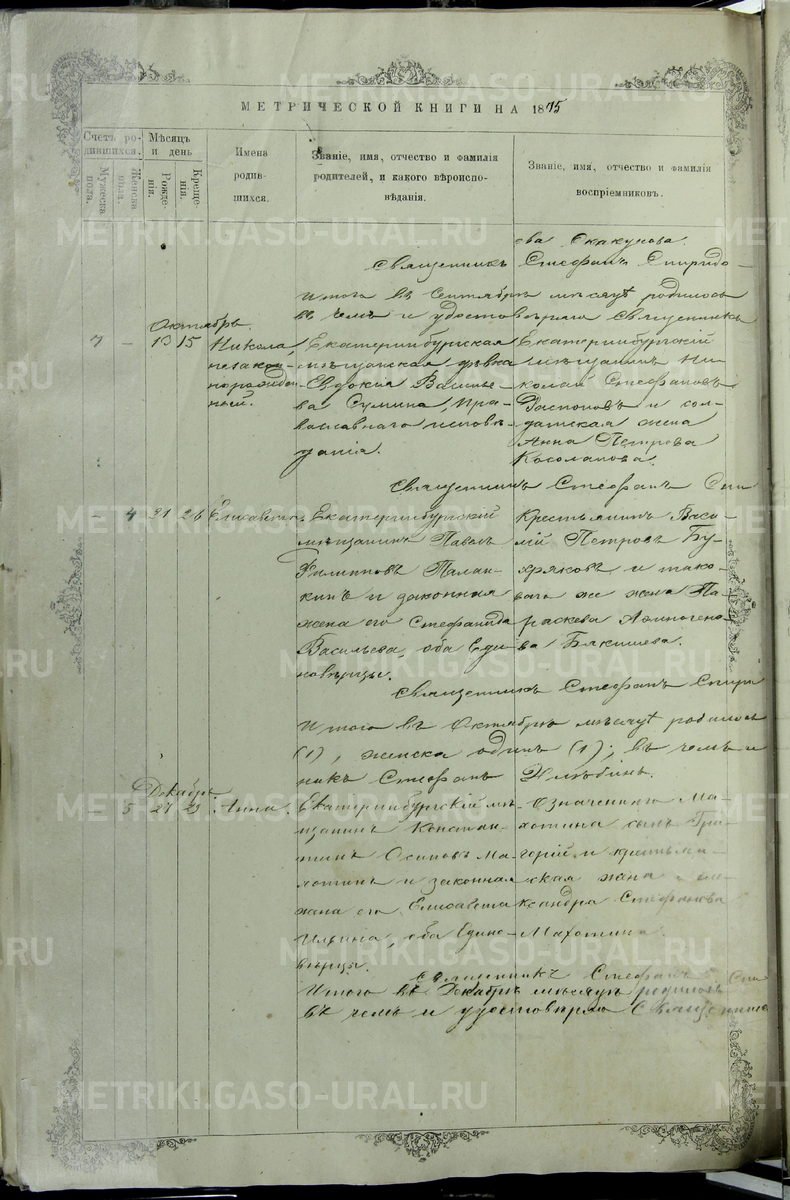 МЕТРИЧЕСКОЙ КНИГИ НА 1875
Счетъ ро-
дившихся.
Мужеска
пола.
Женска
пола.
Мѣсяцъ
и день
Рожде-
нія.
Креще-
нія.
Имена
родив-
шихся.
Званіе, имя, отчество и фамилія
родителей, и какого вѣроиспо-
вѣданія.
Званіе, имя, отчество и фамилія
воспріемниковъ.
ова Скакунова.
Священникъ Стефанъ Спиридо-
Итого въ Сентябрѣ мѣсяцѣ родилось
въ чемъ и удостовѣряю Священникъ
Октябрь
7 — 13 15
Никола,
незакон-
норожден-
ный.
Екатеринбургская
мѣщанская дѣвка
Евдокія Василье-
ва Сумина, Пра-
вославнаго исповѣ-
данія.
Екатеринбургскій
мѣщанинъ Ни-
колай Стефановъ
Распоповъ и сол-
датская жена
Анна Петрова
Косолапова.
Священникъ Стефанъ Спи
4 21 26 Елисавета.
Екатеринбургскій
мѣщанинъ Павелъ
Филиповъ Палан-
кинъ и законная
жена его Стефанида
Васильева, оба Еди-
новѣрцы.
Крестьянинъ Васи-
лій Петровъ Бу-
хряковъ и тако-
ваго же жена Па-
раскева Аѳиноgeno-
ва Бякишева.
Священникъ Стефанъ Спири
Итого въ Октябрѣ мѣсяцѣ родилось
(1), женска одинъ (1); въ чемъ и
никъ Стефанъ
Декабрь
— 5 27 29 Анна.
Екатеринбургскій мѣ-
щанинъ Констан-
тинъ Осиповъ Ма-
хотинъ и законная
жена его Елисавета
Ильина, оба Едино-
вѣрцы.
Означеннаго Ма-
хотина сынъ Гри-
горій и крестьян-
ская жена Але-
ксандра Стефанова
Махотина.
Священникъ Стефанъ Спи
Итого въ Декабрѣ мѣсяцѣ родилось
въ чемъ и удостовѣряю Священник
METRIKI.GASO-URAL.RU